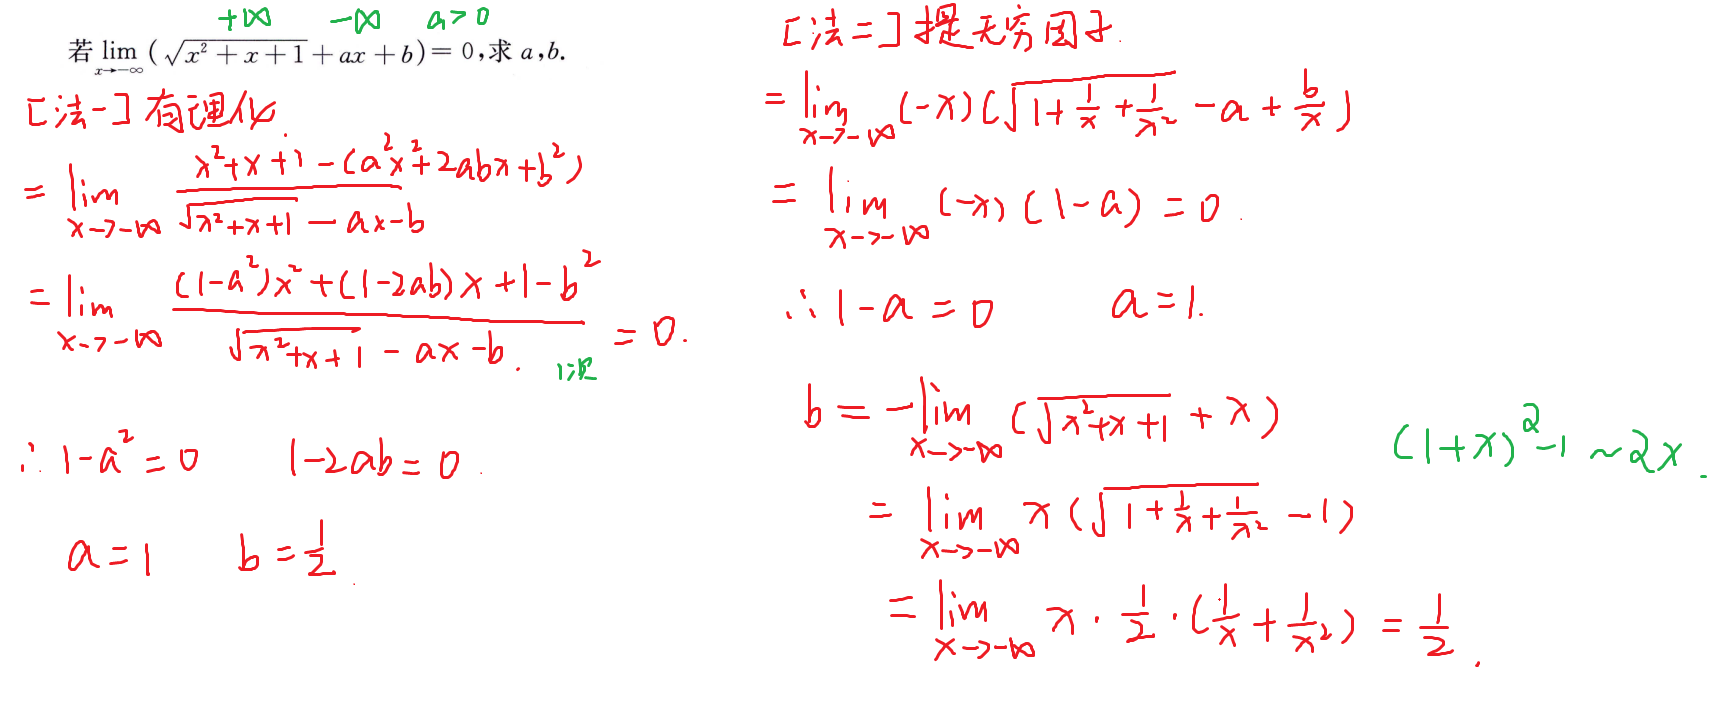 +∞ -∞ a>0
若 lim x→-∞ (√(x²+x+1)+ax+b)=0,求 a,b.
[法一]有理化.
= lim x→-∞ (x²+x+1-(a²x²+2abx+b²))/(√(x²+x+1)-ax-b)
= lim x→-∞ ((1-a²)x²+(1-2ab)x+1-b²)/(√(x²+x+1)-ax-b) = 0.
1次
∴ 1-a²=0 1-2ab=0.
a=1 b=1/2.
[法二]提无穷因子.
= lim x→-∞ (-x)(√(1+1/x+1/x²)-a+b/x)
= lim x→-∞ (-x)(1-a)=0.
∴ 1-a=0 a=1.
b=-lim x→-∞ (√(x²+x+1)+x)
= lim x→-∞ x(√(1+1/x+1/x²)-1)
= lim x→-∞ x·1/2·(1/x+1/x²)=1/2.
(1+x)²-1~2x.